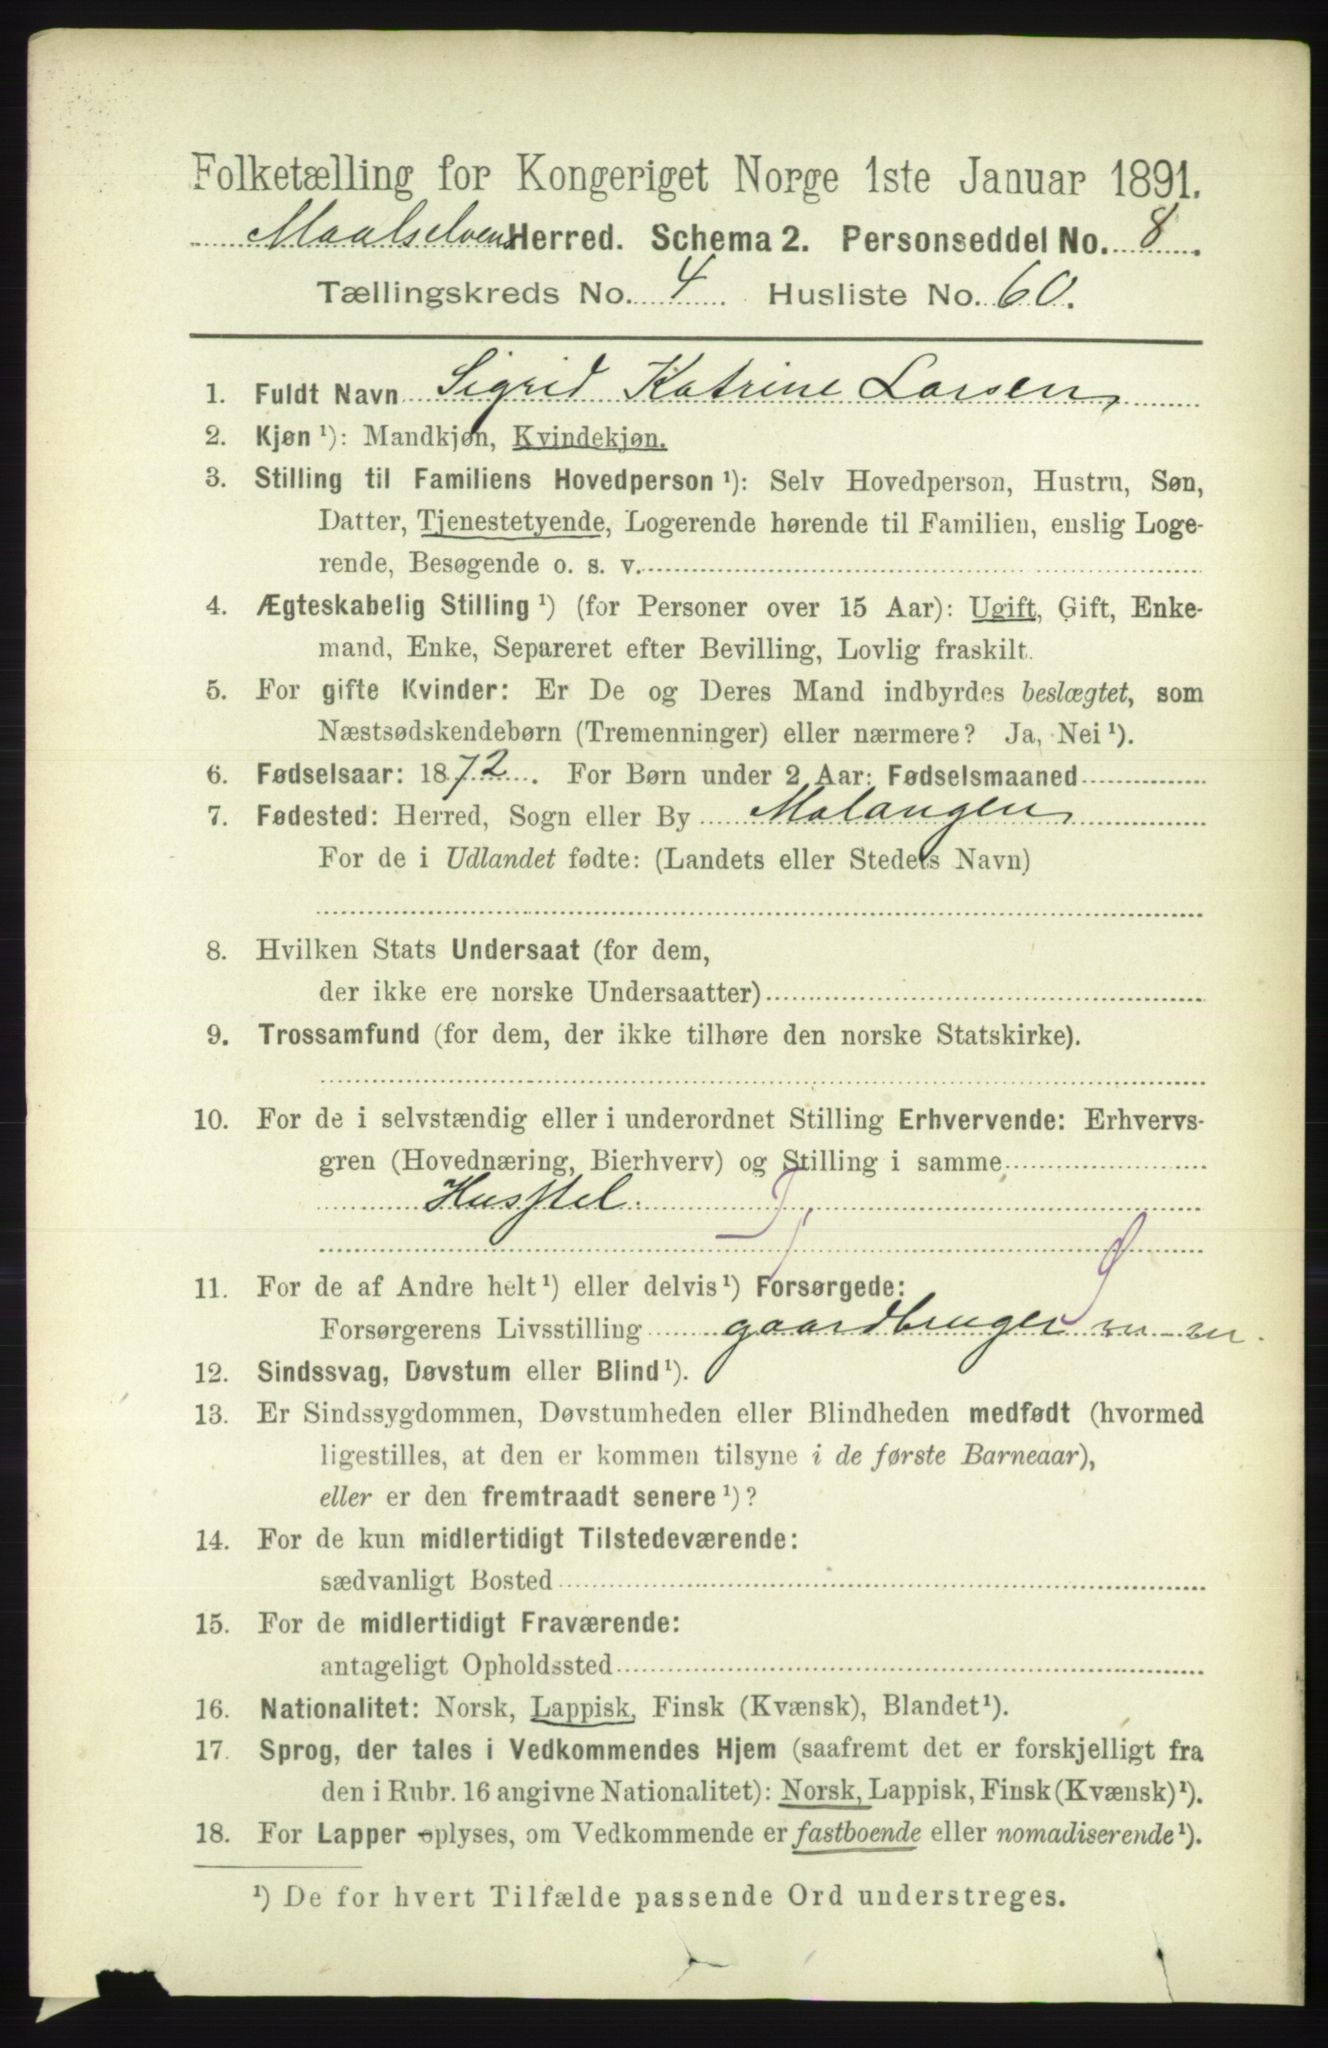 Folketælling for Kongeriget Norge 1ste Januar 1891.
Maalselvens Herred. Schema 2. Personseddel No. 8.
Tællingskreds No. 4 Husliste No. 60.
1. Fuldt Navn Sigrid Katrine Larsen
2. Kjøn ¹): Mandkjøn, Kvindekjøn.
3. Stilling til Familiens Hovedperson ¹): Selv Hovedperson, Hustru, Søn,
Datter, Tjenestetyende, Logerende hørende til Familien, enslig Loge-
rende, Besøgende o. s. v.
4. Ægteskabelig Stilling ¹) (for Personer over 15 Aar): Ugift, Gift, Enke-
mand, Enke, Separeret efter Bevilling, Lovlig fraskilt.
5. For gifte Kvinder: Er De og Deres Mand indbyrdes beslægtet, som
Næstsødskendebørn (Tremenninger) eller nærmere? Ja, Nei ¹).
6. Fødselsaar: 1872. For Børn under 2 Aar: Fødselsmaaned
7. Fødested: Herred, Sogn eller By Malangen
For de i Udlandet fødte: (Landets eller Stedets Navn)
8. Hvilken Stats Undersaat (for dem,
der ikke ere norske Undersaatter)
9. Trossamfund (for dem, der ikke tilhøre den norske Statskirke).
10. For de i selvstændig eller i underordnet Stilling Erhvervende: Erhvervs-
gren (Hovednæring, Bierhverv) og Stilling i samme
Husstel. T
11. For de af Andre helt ¹) eller delvis ¹) Forsørgede:
Forsørgerens Livsstilling gaardbruger
12. Sindssvag, Døvstum eller Blind ¹).
13. Er Sindssygdommen, Døvstumheden eller Blindheden medfødt (hvormed
ligestilles, at den er kommen tilsyne i de første Barneaar),
eller er den fremtraadt senere ¹)?
14. For de kun midlertidigt Tilstedeværende:
sædvanligt Bosted
15. For de midlertidigt Fraværende:
antageligt Opholdssted
16. Nationalitet: Norsk, Lappisk, Finsk (Kvænsk), Blandet ¹).
17. Sprog, der tales i Vedkommendes Hjem (saafremt det er forskjelligt fra
den i Rubr. 16 angivne Nationalitet): Norsk, Lappisk, Finsk (Kvænsk) ¹).
18. For Lapper oplyses, om Vedkommende er fastboende eller nomadiserende ¹).
¹) De for hvert Tilfælde passende Ord understreges.